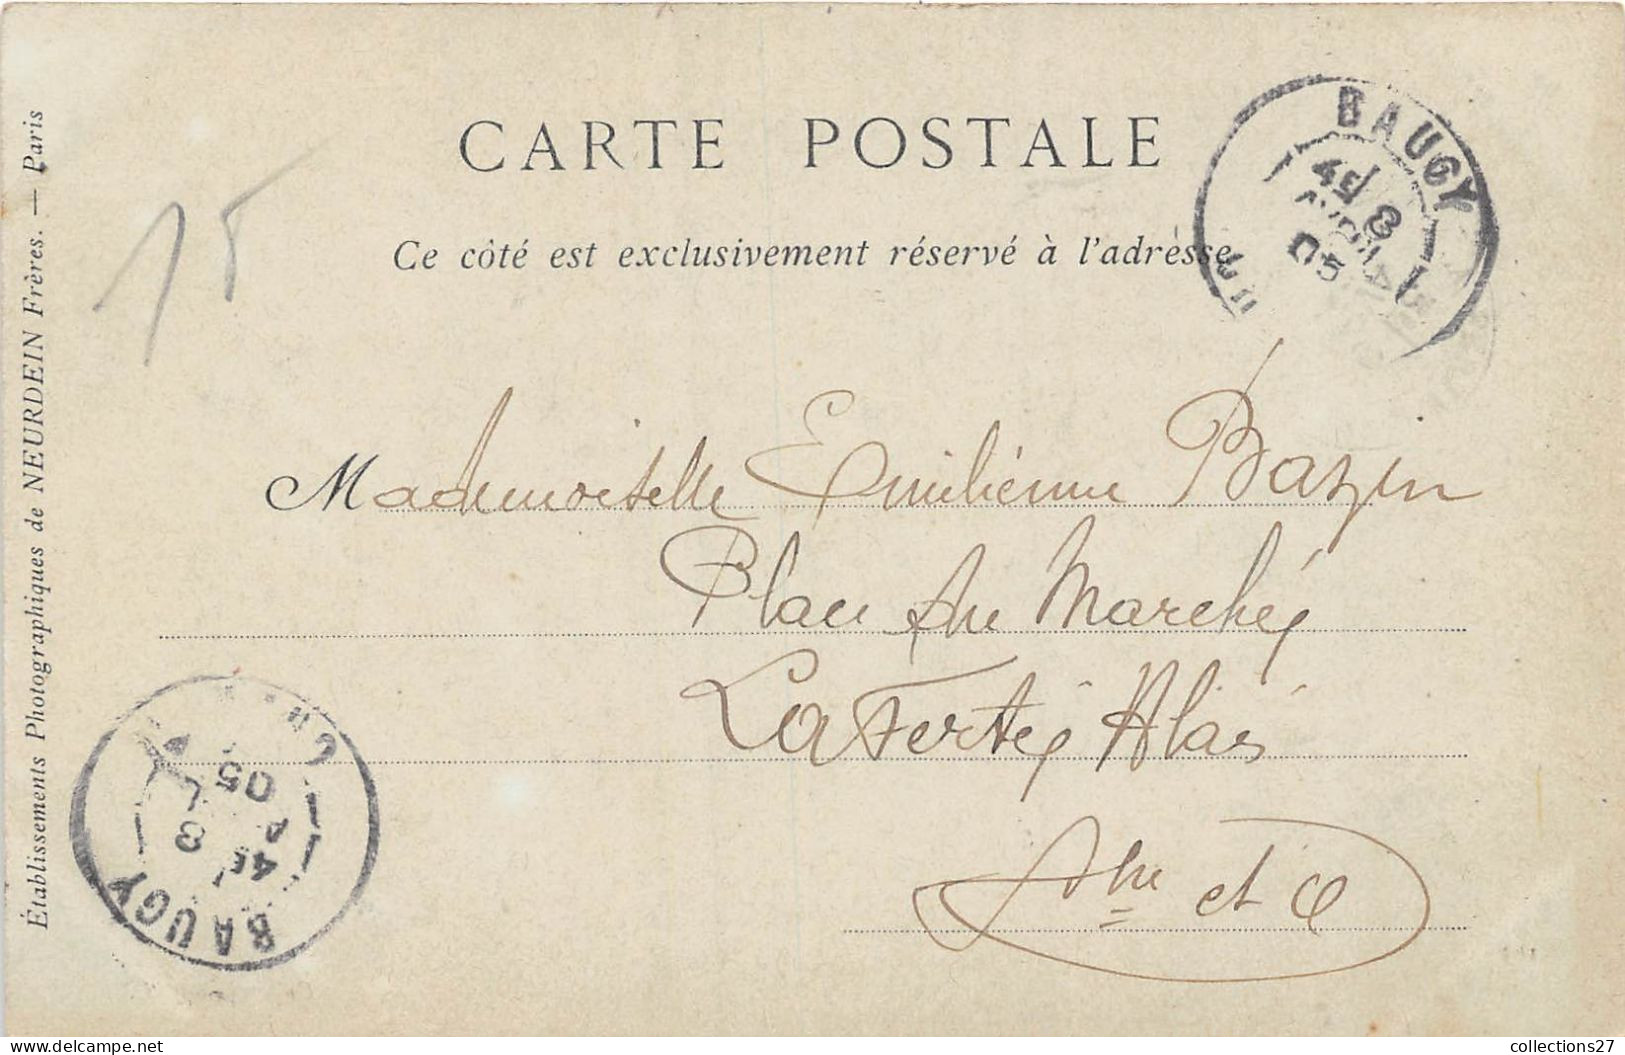 CARTE POSTALE
Ce côté est exclusivement réservé à l'adresse
BAUGY
45
8
AVRIL
05
Mademoiselle Emilienne Bazin
Place du Marché
La Ferté Alais
et O
15
Établissements Photographiques de NEURDEIN Frères. — Paris
BAUGY
45
8
05
collections27